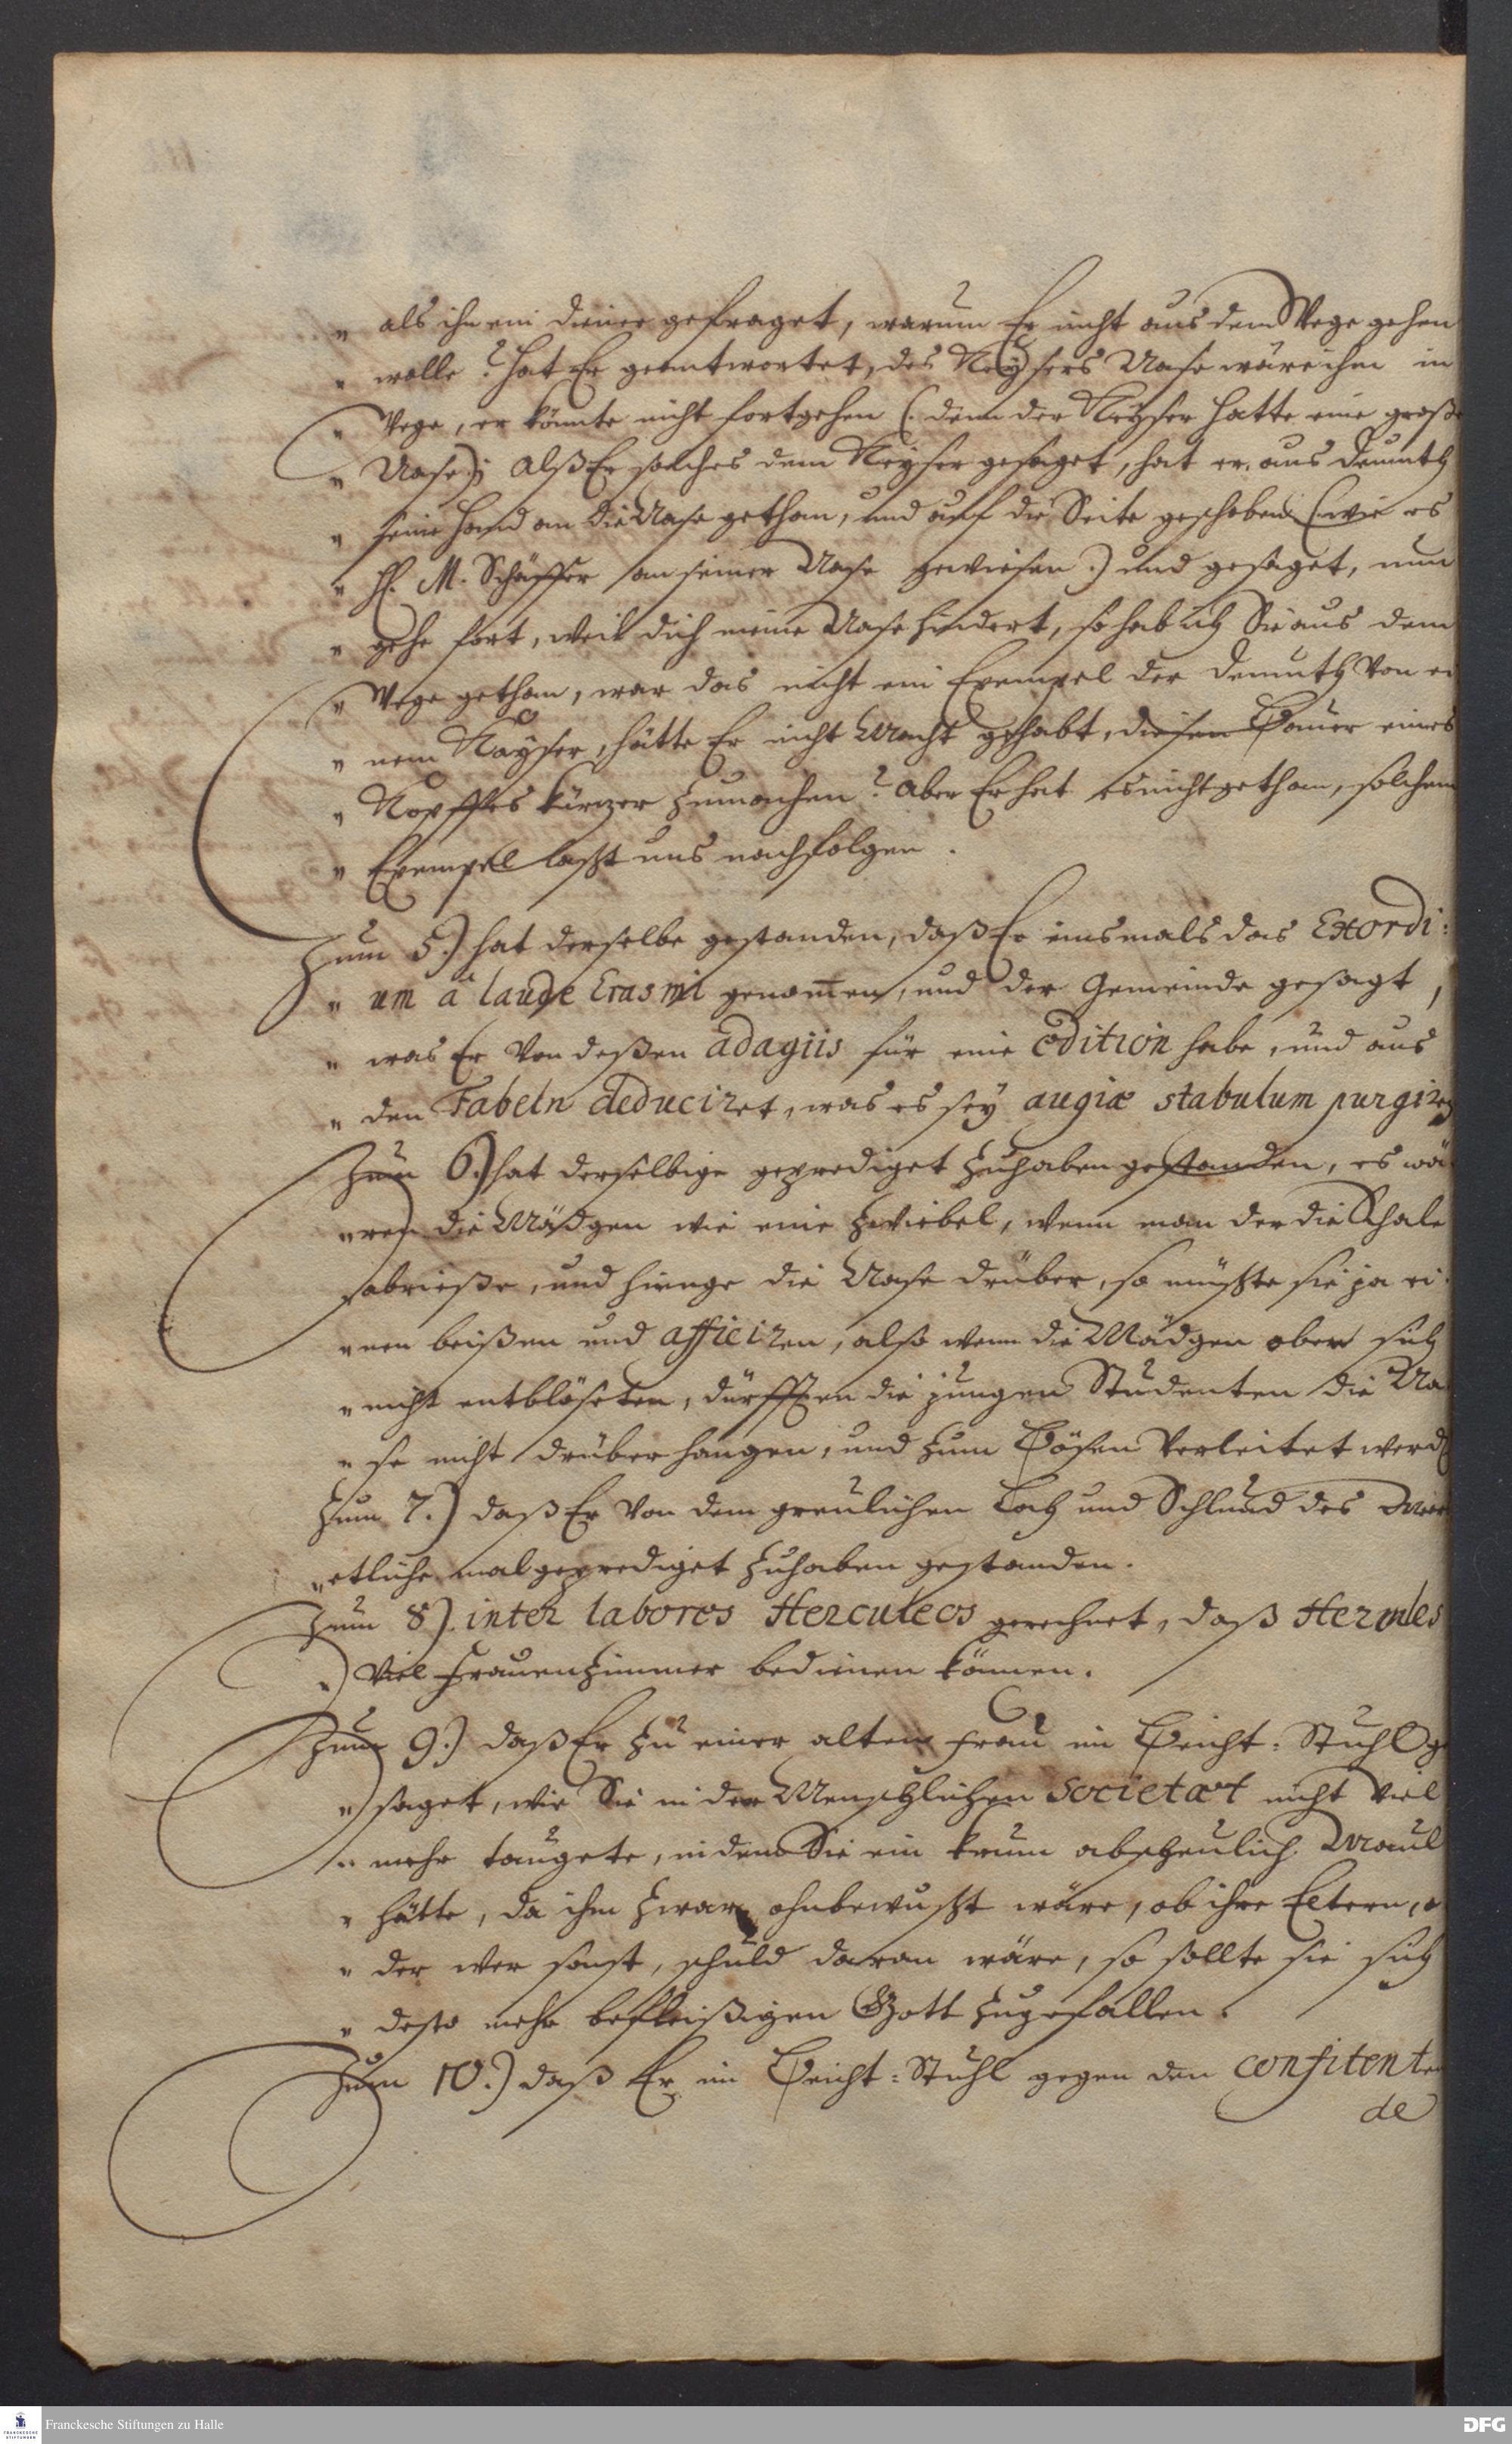 " als ihn ein diener gefraget, warum Er nicht aus dem Wege gehen
" wolle? hat Er geantwortet, des Keÿsers Nase wäre ihm in
" Wege, er könnte nicht fortgehen (. denn der Keÿser hatte eine große
" Nase.) alß Er solches dem Keÿser gesaget, hat er aus demuth
" seine Hand an die Nase gethan, und auf die Seite geschoben (. wie es
" H. M. Schäffer an seiner Nase gewiesen.) und gesaget, nun
" gehe fort, weil dich meine Nase hindert, so hab ich Sie aus dem
" Wege gethan, war das nicht ein Exempel der demuth von ei
" nem Käÿser, hätte Er nicht Macht gehabt, diesen Bauer eines
" Kopffes kürzer zumachen? aber Er hat es nicht gethan, solchem
" Exempel laßt uns nachfolgen.
Zum 5.) hat derselbe gestanden, daß Er einsmals das Exordi:
" um â laude Erasmi genom̃en, und der Gemeinde gesagt,
" was Er von deßen adagiis für eine edition habe, und aus
" den Fabeln deduciret, was es seÿ augiæ stabulum purgiren
Zum 6.) hat derselbige geprediget zuhaben gestanden, es wä
" ren die Mädgen wie eine Zwiebel, wenn man der die Schale
" abrieße, und hienge die Nase drüber, so müßte sie ja ei
" nen beißen und afficiren, also wenn die Mädgen oben sich
" nicht entblöseten, dürfften die jungen Studenten die Na
" se nicht drüber hangen, und zum Bösen verleitet werd
Zum 7.) daß Er von dem greulichen Loch und Schlund des
" etliche mal geprediget zuhaben gestanden.
Zum 8). inter labores Herculeos gerechnet, daß Hercules
" viel Frauenzimmer bedienen können.
Zum 9.) daß Er zu einer alten Frau im Beicht-Stuhl ge
" saget, wie Sie in der Menschlichen Societæt nicht viel
" mehr taugete, indem Sie ein krum abscheulich Maul
" hätte, da ihm zwar ohnbewußt wäre, ob ihre Eltern, o
" der wer sonst, schuld daran wäre, so sollte sie sich
" desto mehr befleißigen Gott zugefallen.
Zum 10.) daß Er im Beicht-Stuhl gegen den confitenten
de
Franckesche Stiftungen zu Halle
DFG